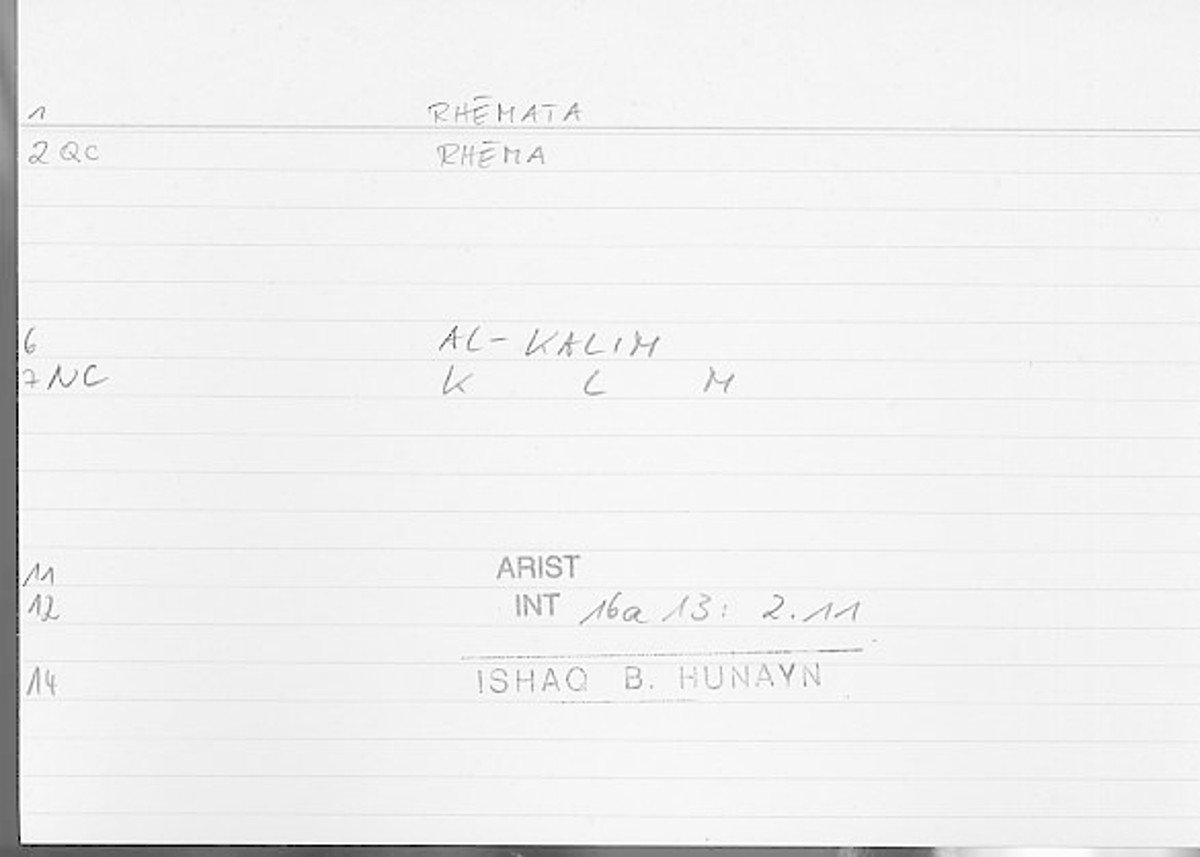 1 RHĒMATA
2 QC RHĒMA
6 AL-KALIM
7 NC K L M
11 ARIST
12 INT 16a 13: 2.11
14 ISHAQ B. HUNAYN